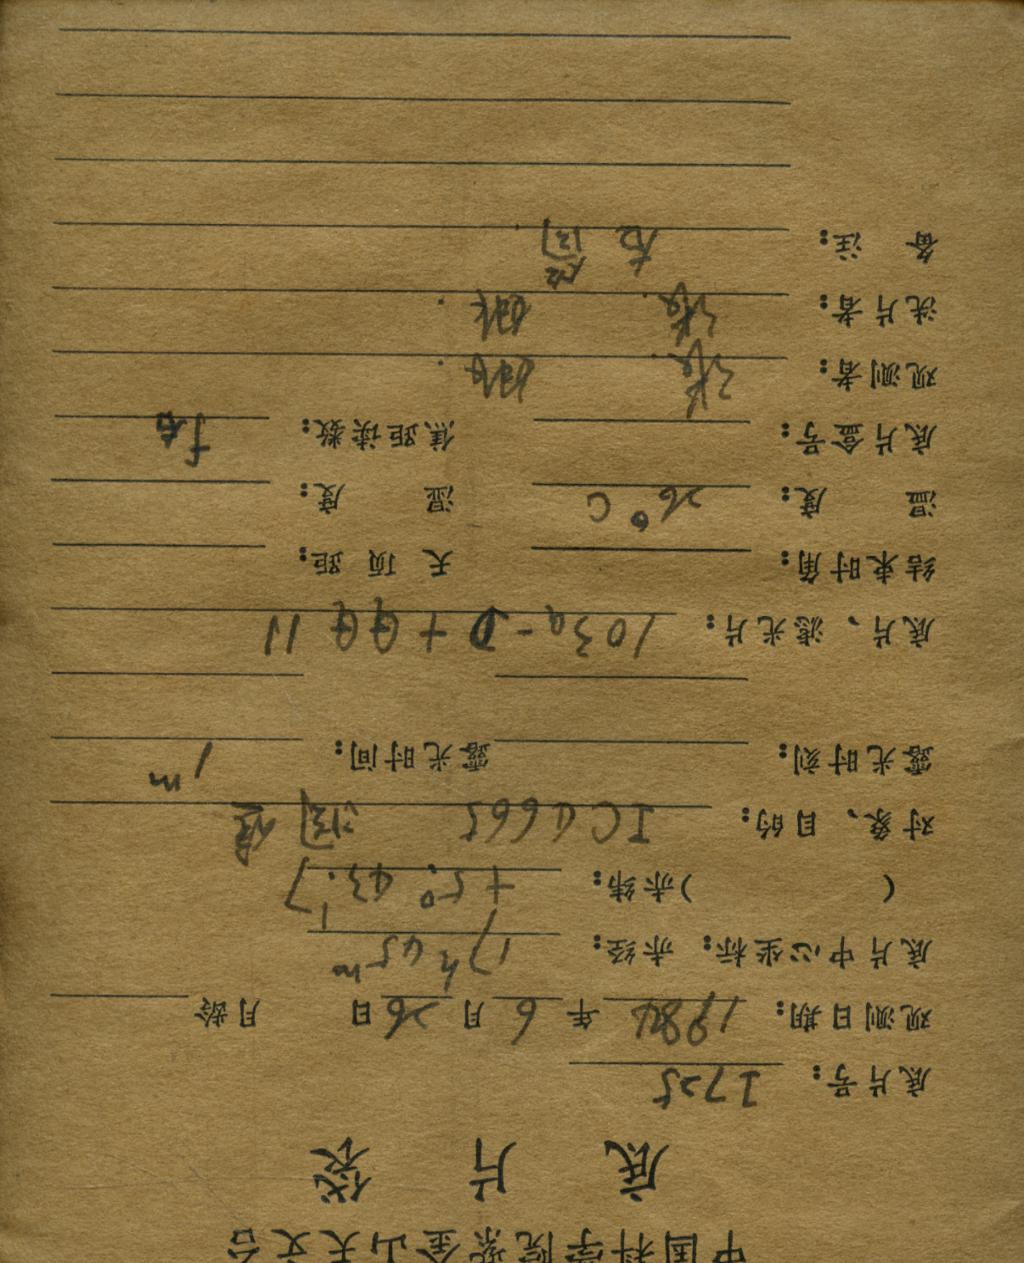 中国科学院紫金山天文台
底 片 袋
底片号: 1725
观测日期: 1984 年 6 月 26 日 月龄
底片中心坐标: 赤经: 17h 45m
( )赤纬: +5° 43.'7
对象、目的: IC4665 测
露光时刻: 露光时间: 1m
底片、滤光片: 103a-D + GG 11
结束时角: 天顶距:
温 度: 26°C 湿 度:
底片盒号: 焦距读数:
观测者: 张
洗片者: 张
备 注: